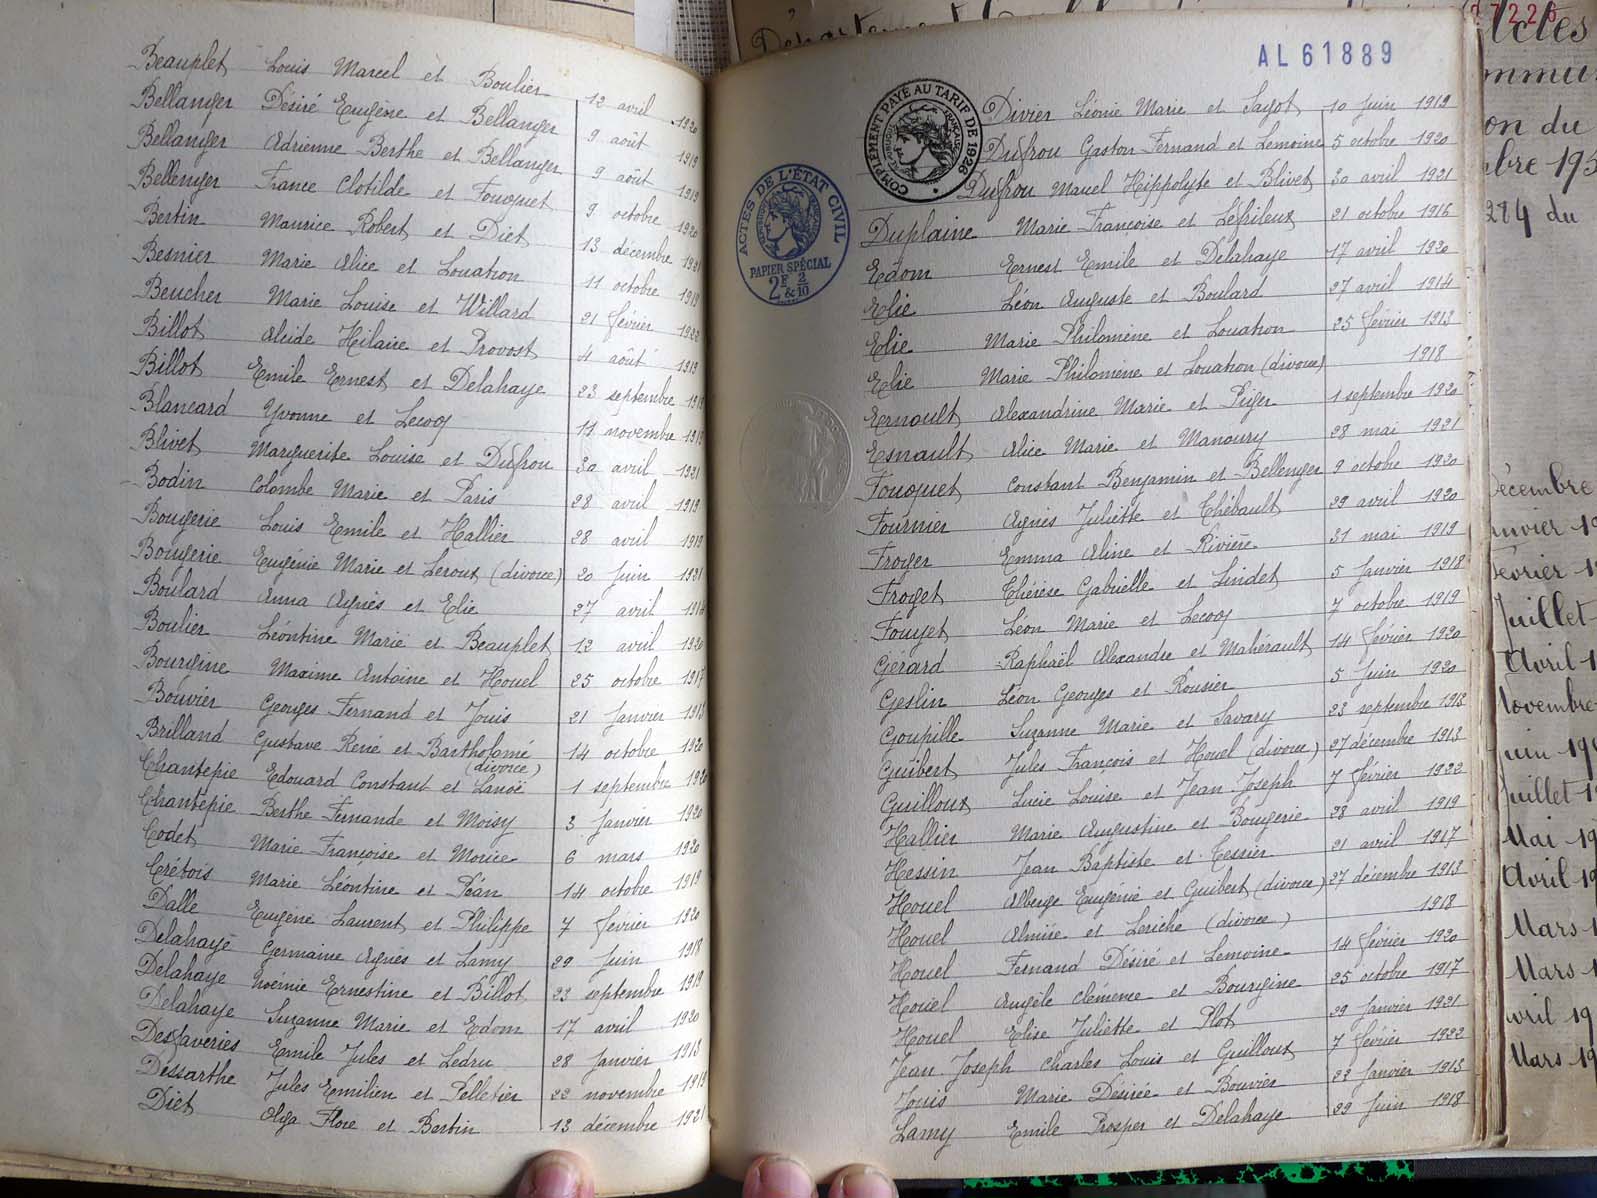 Beauplet Louis Marcel et Boulier 12 avril 1920
Bellanger Désiré Eugène et Bellanger 9 août 1919
Bellanger Adrienne Berthe et Bellanger 9 août 1919
Bellenger France Clotilde et Fouquet 9 octobre 1920
Bertin Maurice Robert et Diet 13 décembre 1921
Besnier Marie Alice et Louatron 11 octobre 1919
Beucher Marie Louise et Willard 21 février 1922
Billot Alcide Hilaire et Provost 4 août 1919
Billot Emile Ernest et Delahaye 23 septembre 1919
Blancard Yvonne et Lecoq 11 novembre 1919
Blivet Marguerite Louise et Dufrou 30 avril 1921
Bodin Colombe Marie et Paris 28 avril 1919
Bougerie Louis Emile et Hallier 28 avril 1919
Bougerie Eugénie Marie et Leroux (divorce) 20 Juin 1921
Boulard Anna Agnès et Elie 27 avril 1914
Boulier Léontine Marie et Beauplet 12 avril 1920
Bourgine Maxime Antoine et Houel 25 octobre 1917
Bouvier Georges Fernand et Jouis 21 Janvier 1913
Brilland Gustave René et Bartholomé 14 octobre 1920
(divorce)
Chantepie Edouard Constant et Lanoë 1 septembre 1920
Chantepie Berthe Fernande et Moisy 3 Janvier 1920
Codet Marie Françoise et Morice 6 mars 1920
Crébois Marie Léontine et Péan 14 octobre 1919
Dalle Eugène Laurent et Philippe 7 février 1920
Delahaye Germaine Agnès et Lamy 29 Juin 1918
Delahaye Noémie Ernestine et Billot 23 septembre 1919
Delahaye Suzanne Marie et Edom 17 avril 1920
Desfaveries Emile Jules et Ledru 28 Janvier 1913
Dessarthe Jules Emilien et Pelletier 22 novembre 1919
Diet Olga Flore et Bertin 13 décembre 1921
AL 61889
COMPLÉMENT PAYÉ AU TARIF DE 1926
ACTES DE L'ÉTAT CIVIL
PAPIER SPÉCIAL
2F & 2/10
Divier Léonie Marie et Sagot 10 Juin 1919
Dufrou Gaston Fernand et Lemoine 5 octobre 1920
Dufrou Marcel Hippolyte et Blivet 30 avril 1921
Duplaine Marie Françoise et Lefrileux 21 octobre 1916
Edom Ernest Emile et Delahaye 17 avril 1920
Elie Léon Auguste et Boulard 27 avril 1914
Elie Marie Philomène et Louatron 25 février 1913
Elie Marie Philomène et Louatron (divorce) 1918
Ernoult Alexandrine Marie et Piger 1 septembre 1920
Esnault Alice Marie et Manoury 28 mai 1921
Fouquet Constant Benjamin et Bellenger 9 octobre 1920
Fournier Agnès Juliette et Thébault 29 avril 1920
Froger Emma Aline et Rivière 31 mai 1919
Froget Thérèse Gabrielle et Lindet 5 Janvier 1918
Fouyet Léon Marie et Lecoq 7 octobre 1919
Gérard Raphaël Alexandre et Mahérault 14 février 1920
Geslin Léon Georges et Rousier 5 Juin 1920
Goupille Suzanne Marie et Savary 23 septembre 1913
Guibert Jules François et Houel (divorce) 27 décembre 1913
Guilloux Lucie Louise et Jean Joseph 7 février 1922
Hallier Marie Augustine et Bougerie 28 avril 1919
Hessin Jean Baptiste et Tessier 21 avril 1917
Houel Alberge Eugénie et Guibert (divorce) 27 décembre 1913
Houel Almire et Leriche (divorce) 1918
Houel Fernand Désiré et Lemoine 14 février 1920
Houel Angèle Clémence et Bourgine 25 octobre 1917
Houel Elise Juliette et Plot 29 Janvier 1921
Jean Joseph Charles Louis et Guilloux 7 février 1922
Jouis Marie Désirée et Bouvier 22 Janvier 1913
Lamy Emile Prosper et Delahaye 29 Juin 1918
27226
Actes
on du
284 du
Décembre
Juillet
Avril
Novembre
Juillet
Mai 19
Avril 19
Mars 1
Mars 1
Mars 19